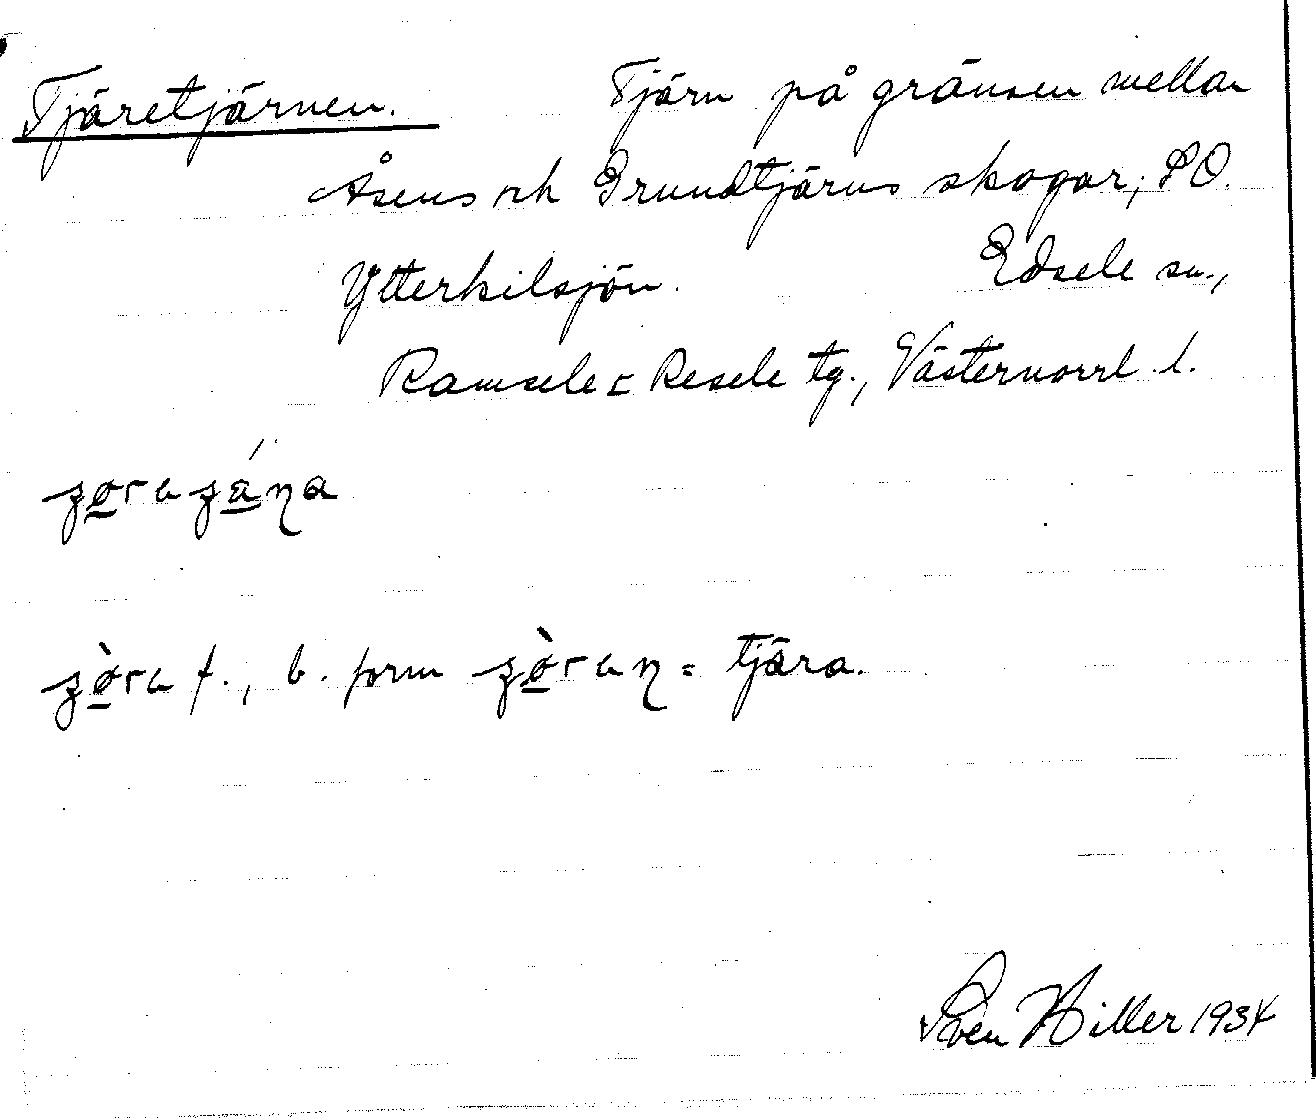 Tjäretjärnen. Tjärn på gränsen mellan
Åsens och Grundtjärns skogar, SO.
Ytterkilsjön. Edsele sn.,
Ramsele o Resele tg., Västernorrl. l.
f., b. form = tjära.
Sven Hiller 1934